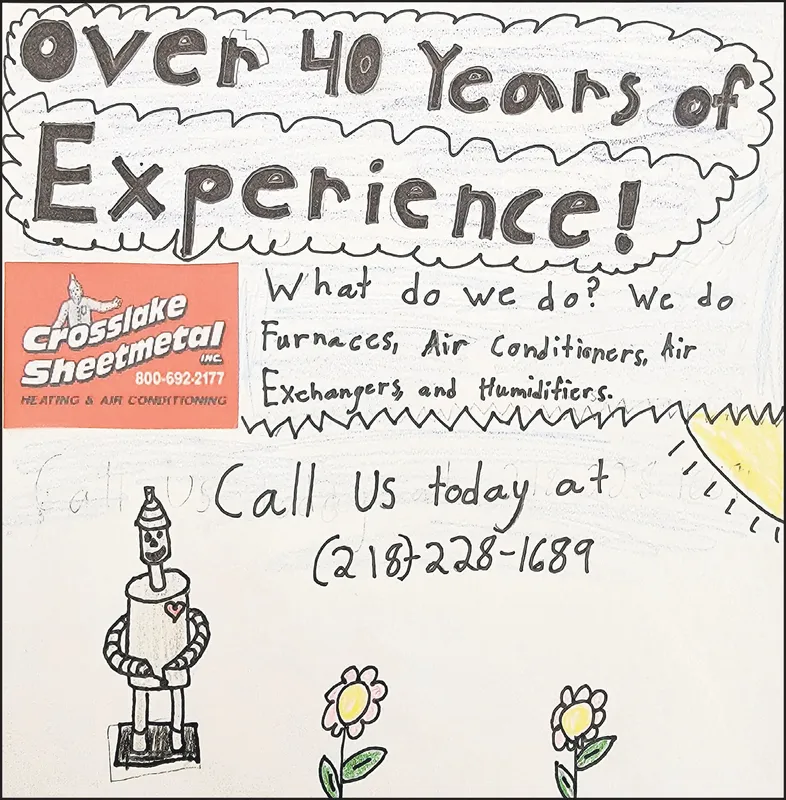 Over 40 Years of
Experience!
Crosslake
Sheetmetal
INC.
800-692-2177
HEATING & AIR CONDITIONING
What do we do? We do
Furnaces, Air Conditioners, Air
Exchangers, and Humidifiers.
Call Us today at
(218)-228-1689